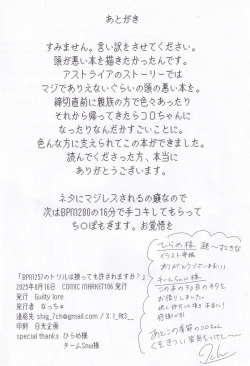 あとがき
すみません。言い訳をさせてください。
頭が悪い本を描きたかったんです。
アストライアのストーリーでは
マジでありえないぐらいの頭の悪い本を。
締切直前に親族の方で色々あったり
それから帰ってきたらコロちゃんに
なったりなんだかすごいことに。
色んな方に支えられてこの本ができました。
読んでくださった方、本当に
ありがとうございます。
ネタにマジレスされるの癪なので
次はBPM280の16分で手コキしてもらって
ちつぽもぎます。お覚悟を
「BPM257のトリルは捜っても許されますか?」
2025年8月16日 COMIC MARKET106 発行
発行 Guilty lore
発行者 なっちゅ
連絡先 shig_7ch@gmail.com / X:
印刷 日光企画
special thanks ひらめ様
チームSnw様
ひらめ様
イラスト寄稿
ありがとうございました!!
チームSnw様
この本の
お借りしました。